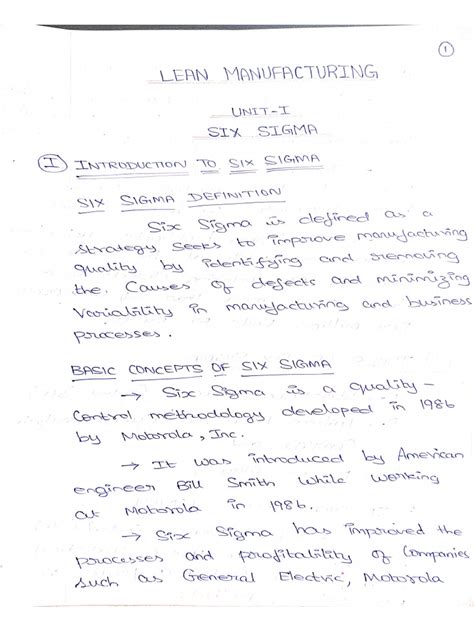 1
LEAN MANUFACTURING
UNIT-I
SIX SIGMA
I INTRODUCTION TO SIX SIGMA
SIX SIGMA DEFINITION
Six Sigma is defined as a
strategy seeks to improve manufacturing
quality by identifying and removing
the Causes of defects and minimizing
Variability in manufacturing and business
processes.
BASIC CONCEPTS OF SIX SIGMA
→ Six Sigma is a quality-
Control methodology developed in 1986
by Motorola, Inc.
→ It was introduced by American
engineer Bill Smith while working
at Motorola in 1986.
→ Six Sigma has improved the
processes and profitability of Companies
such as General Electric, Motorola